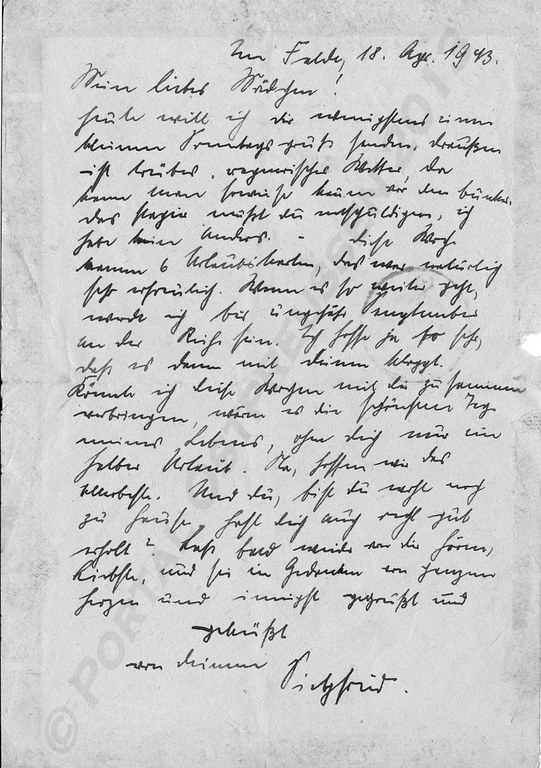 Im Felde, 18. Apr. 1943.
Mein liebes Mädchen!
heute will ich dir wenigstens einen
kleinen Sonntagsgruß senden, draußen
ist trübes, regnerisches Wetter, da
kann man sowieso kaum vor den Bunker.
das Papier mußt du entschuldigen, ich
habe kein anders. - diese Woche
kamen 6 Urlaubskarten, das war natürlich
sehr erfreulich. Wenn es so weiter geht,
werde ich bis ungefähr September
an der Reihe sein. Ich hoffe ja so sehr,
daß es dann mit deinem klappt.
Könnte ich diese Wochen mit dir zusammen
verbringen, wären es die schönsten Tage
meines Lebens, ohne dich nur ein
halber Urlaub. Na, hoffen wir das
Allerbeste. Und du, bist du wohl noch
zu hause, hast dich auch recht gut
erholt? Laß bald wieder von dir hören,
Liebste, und sei in Gedanken von ganzem
herzen und innigst gegrüßt und
geküßt
von deinem Siegfried.
© PORTAL